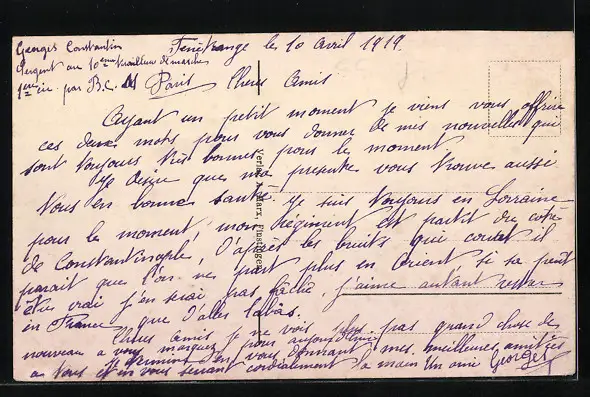 Georges Constantin
Sergent au 10ème bataillon de marche
1ère Cie par B.C.M Paris
Fénétrange le 10 avril 1919.
Chers Amis
Ayant un petit moment je viens vous offrir
ces deux mots pour vous donner de mes nouvelles qui
sont toujours très bonnes pour le moment.
Je désire que ma présente vous trouve aussi
tous en bonne santé. Je suis toujours en Lorraine
pour le moment, mon régiment est parti du côté
de Constantinople, d'après les bruits qui courent il
parait que l'on ne part plus en Orient si sa peut
être vrai j'en serai pas fâché, j'aime autant rester
en France que d'aller labàs.
Chers Amis je ne vois plus pas grand chose de
nouveau a vous marquer pour aujourd'hui
je termine en vous donnant mes meilleures amitiés
a tous et en vous serrant cordialement la main Un ami Georges
Verlag A. Marx, Finstingen